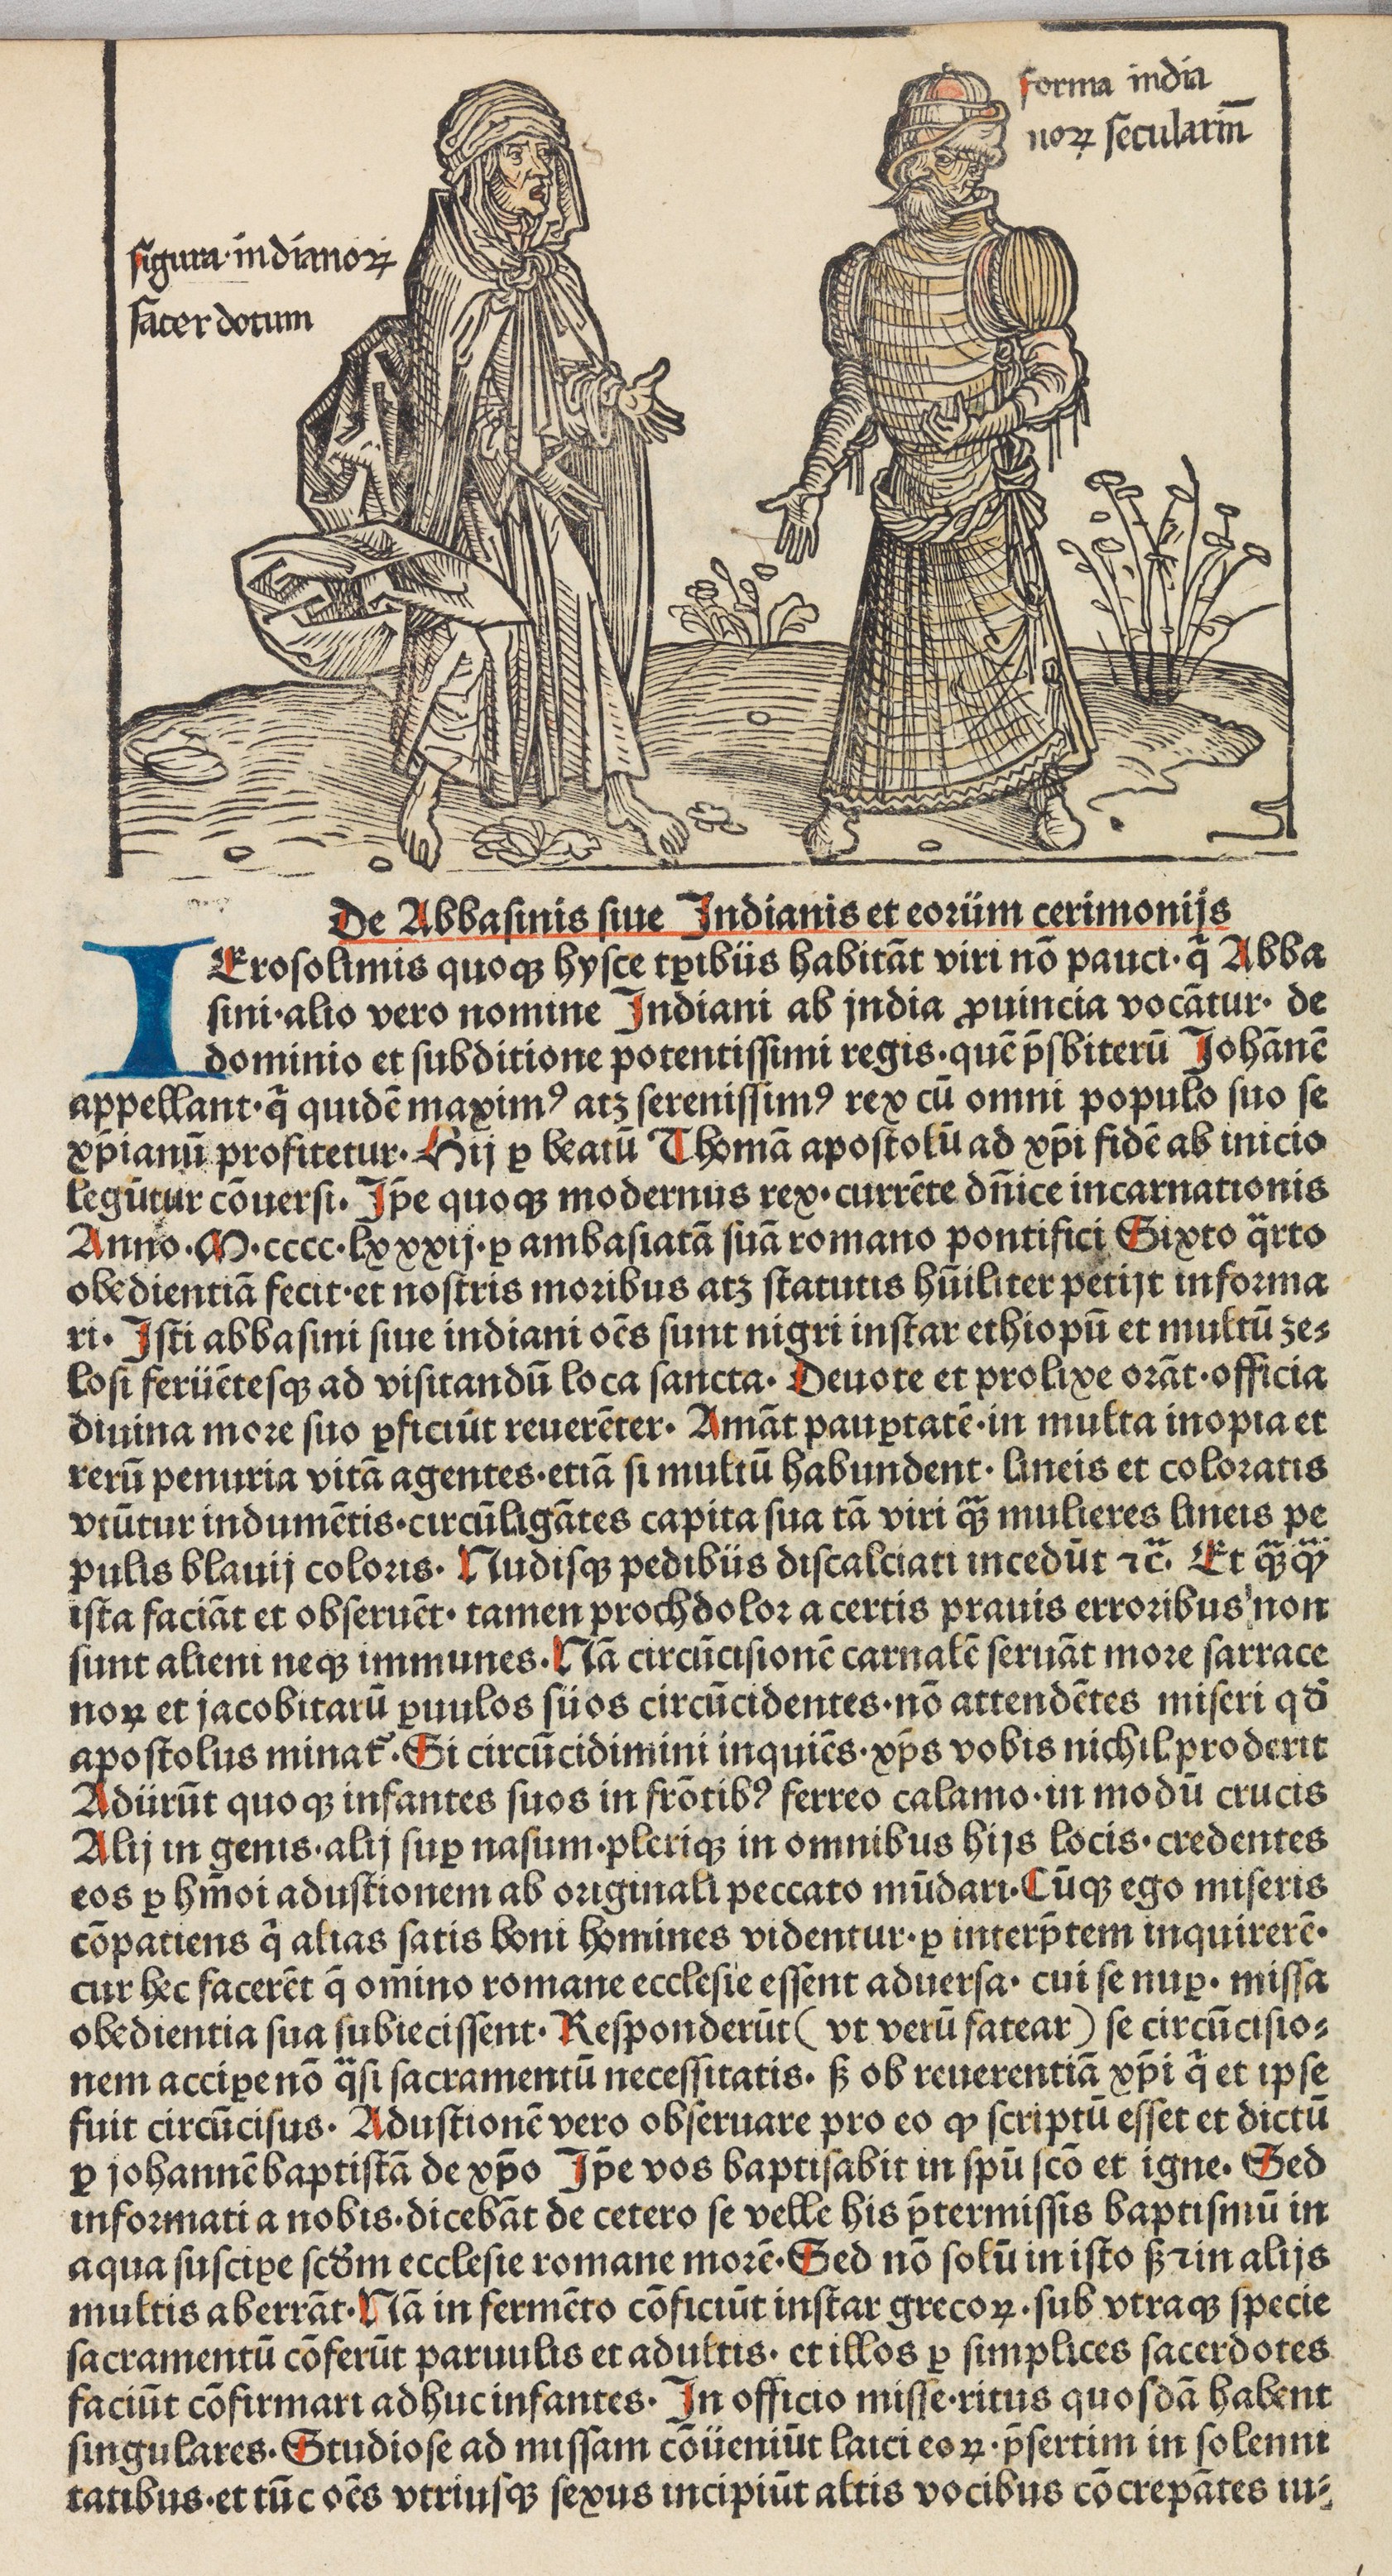 forma india
noꝝ seculariū
figura indianoꝝ
sacerdotum
De Abbasinis siue Indianis et eorüm cerimonijs
IErosolimis quoqꝫ hysce tꝑibüs habitāt viri nō pauci· q̄ Abba
sini·alio vero nomine Indiani ab jndia ꝓuincia vocātur· de
dominio et subditione potentissimi regis·quē p̄sbiterū Johānē
appellant·q̄ quidē maximꝰ atꝫ serenissimꝰ rex cū omni populo suo se
xp̄ianū profitetur· Hij ꝑ beatū Thomā apostolū ad xp̄i fidē ab inicio
legūtur cōuersi· Ip̄e quoqꝫ modernus rex·currēte dn̄ice incarnationis
Anno·M·cccc·lxxxij·ꝑ ambasiatā suā romano pontifici Sixto q̄rto
obedientiā fecit·et nostris moribus atꝫ statutis hūiliter petijt informa
ri· Isti abbasini siue indiani oēs sunt nigri instar ethiopū et multū ze⸗
losi ferüētesqꝫ ad visitandū loca sancta· Deuote et prolixe orāt·officia
diuina more suo ꝑficiūt reuerēter· Amāt pauꝑtatē·in multa inopia et
rerū penuria vitā agentes·etiā si multū habundent· lineis et coloratis
vtūtur indumētis·circūligātes capita sua tā viri qꝫ̄ mulieres lineis pe
pulis blauij coloris· Nudisqꝫ pedibüs discalciati incedūt ⁊c̄· Et qꝫ̄qꝫ̄
ista faciāt et obseruēt· tamen prochdolor a certis prauis erroribus non
sunt alieni neqꝫ immunes·Nā circūcisionē carnalē seruāt more sarrace
noꝝ et jacobitarū ꝑuulos süos circūcidentes·nō attendētes miseri qd̄
apostolus minat᷑·Si circūcidimini inquiēs·xp̄s vobis nichil proderit
Adürūt quoqꝫ infantes suos in frōtibꝰ ferreo calamo·in modū crucis
Alij in genis·alij suꝑ nasum·pleriqꝫ in omnibus hijs locis·credentes
eos ꝑ hm̄oi adustionem ab originali peccato mūdari·Cūqꝫ ego miseris
cōpatiens q̄ alias satis boni homines videntur·ꝑ interp̄tem inquirerē·
cur hec facerēt q̄ om̄ino romane ecclesie essent aduersa· cui se nuꝑ· missa
obedientia sua subiecissent· Responderūt( vt verū fatear) se circūcisio⸗
nem acciꝑe nō q̄si sacramentū necessitatis· ß ob reuerentiā xp̄i q̄ et ipse
fuit circūcisus· Adustionē vero obseruare pro eo ꝙ scriptū esset et dictū
ꝑ johannē baptistā de xp̄o Ip̄e vos baptisabit in spū scō et igne· Sed
informati a nobis·dicebāt de cetero se velle his p̄termissis baptismū in
aqua susciꝑe scd̄m ecclesie romane morē·Sed nō solū in isto ß ⁊ in alijs
multis aberrāt·Nā in fermēto cōficiūt instar grecoꝝ·sub vtraqꝫ specie
sacramentū cōferūt paruulis et adultis· et illos ꝑ simplices sacerdotes
faciūt cōfirmari adhuc infantes· In officio misse·ritus quosdā habent
singulares·Studiose ad missam cōüeniūt laici eoꝝ·p̄sertim in solenni
tatibus·et tūc oēs vtriusqꝫ sexus incipiūt altis vocibus cōcrepātes iu⸗